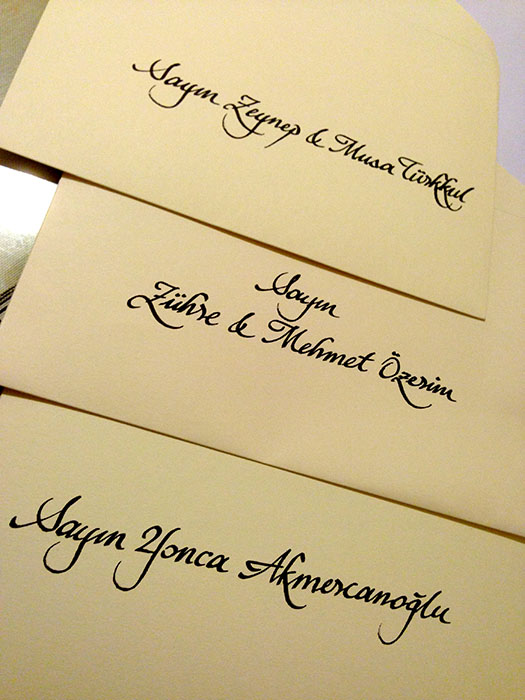 Sayın Zeynep & Musa Türkkul
Sayın
Zühre & Mehmet Özerim
Sayın Yonca Akmercanoğlu